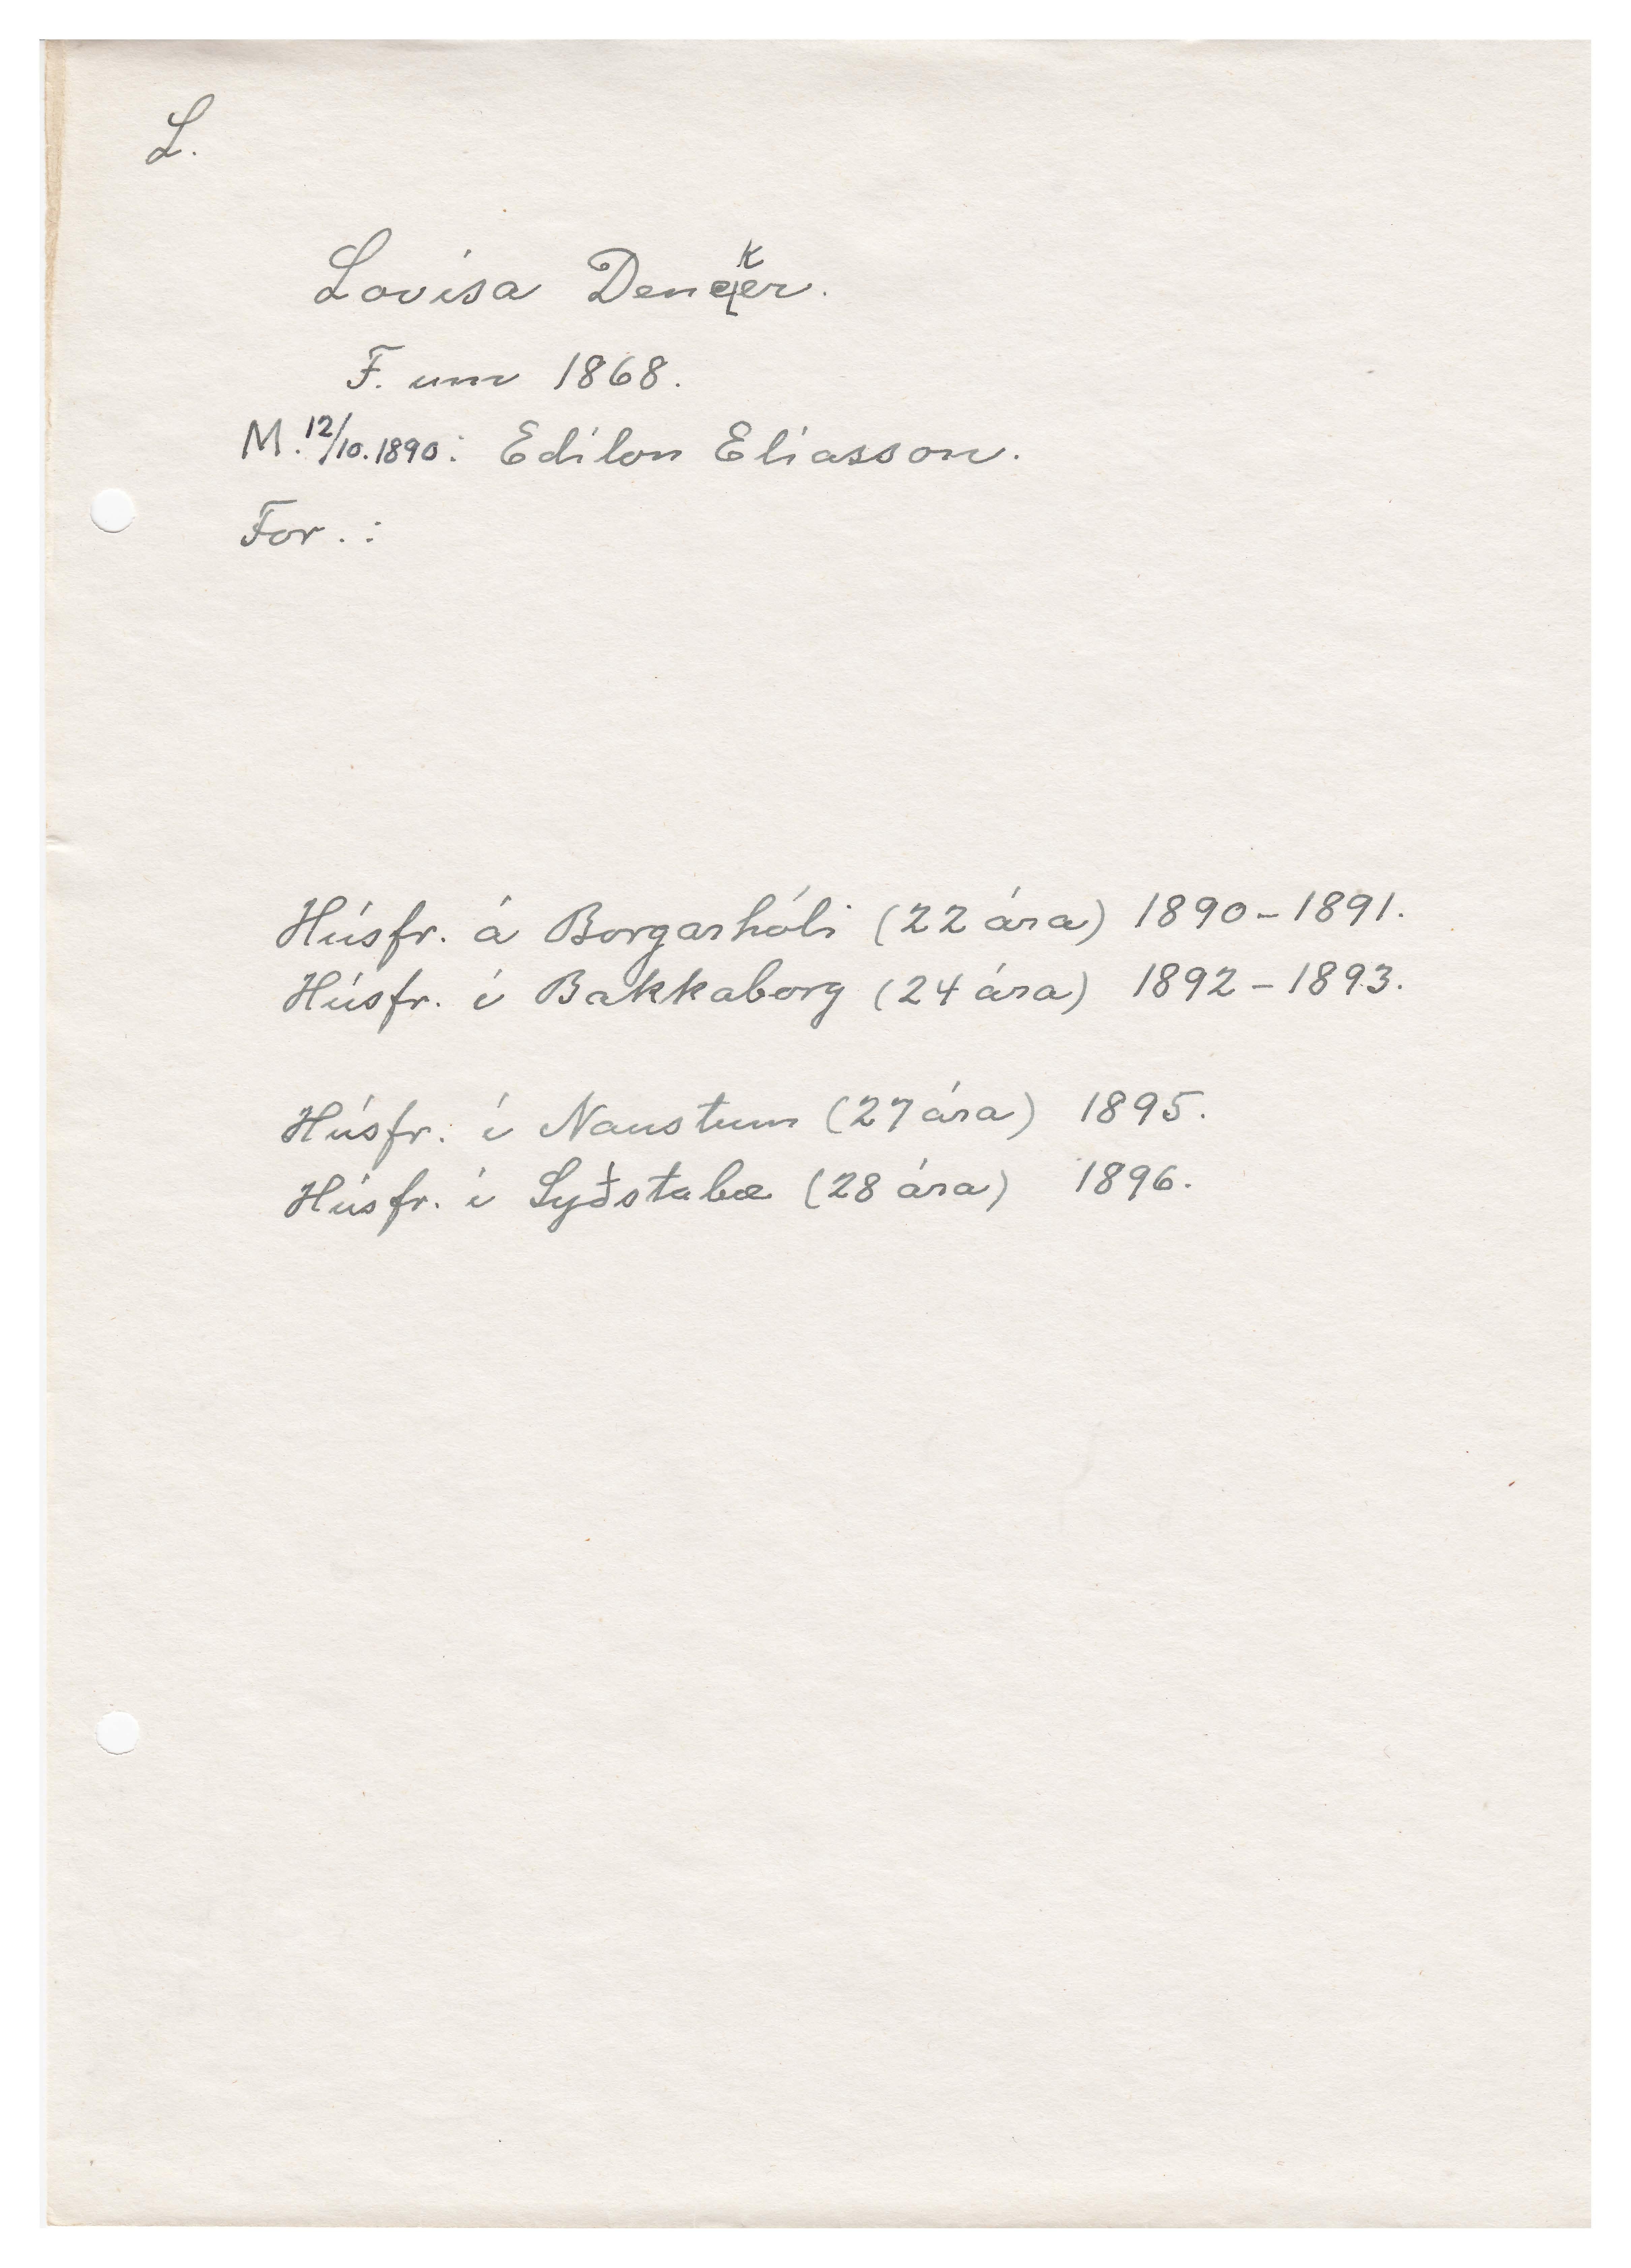 L.
Lovísa Dencker.
F. um 1868.
M. 12/10. 1890: Edílon Elíasson.
For.:
Húsfr. á Borgarhóli (22 ára) 1890-1891.
Húsfr. í Bakkaborg (24 ára) 1892-1893.
Húsfr. í Naustum (27 ára) 1895.
Húsfr. í Syðstabæ (28 ára) 1896.